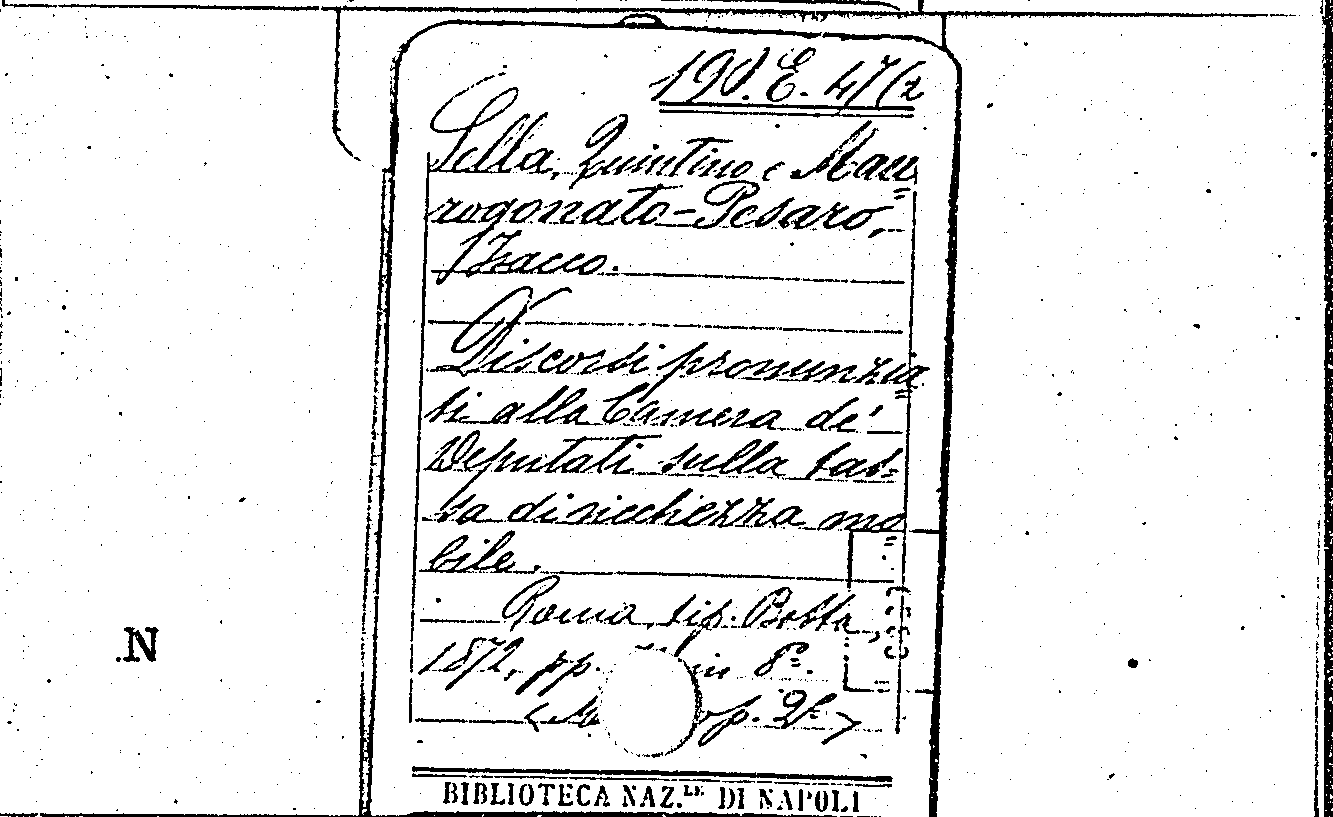 190.E.47(2
Sella, Quintino e Mau=
rogonato-Pesaro,
Isacco.
Discorsi pronunzia=
ti alla Camera de'
Deputati sulla tas-
sa di ricchezza mo=
bile.
Roma, tip. Botta,
1872, pp. in 8º.
N
BIBLIOTECA NAZ.LE DI NAPOLI